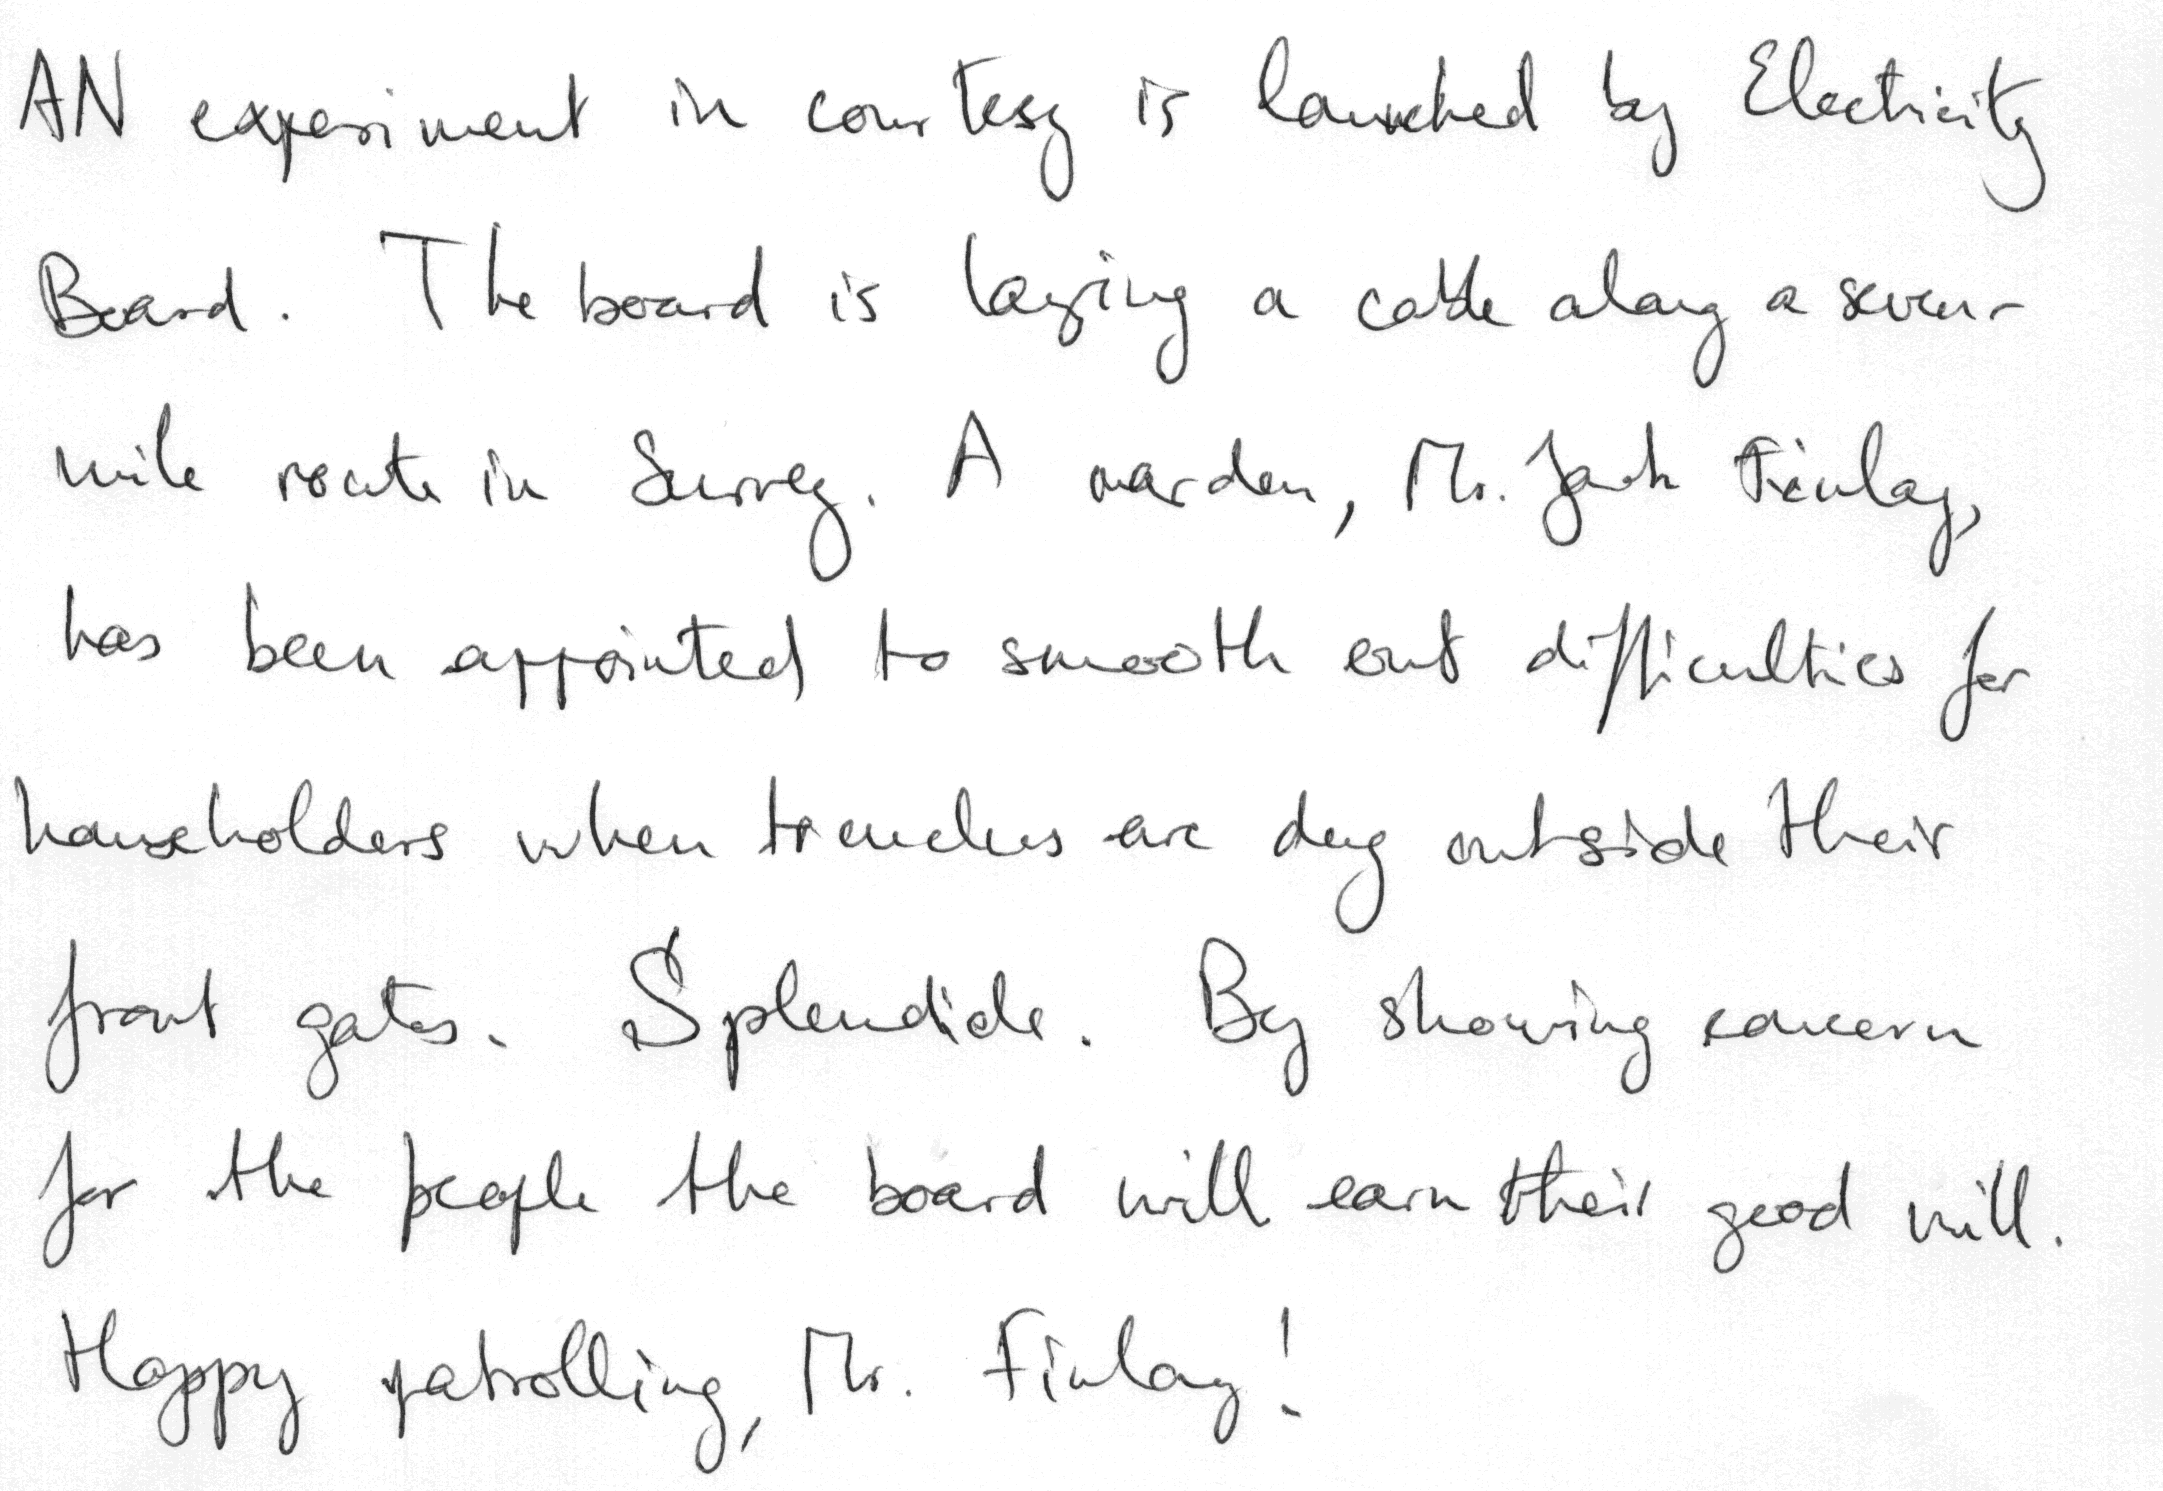 AN experiment in courtesy is launched by Electricity
Board. The board is laying a cable along a seven-
mile route in Surrey. A warden, Mr. Jack Finlay,
has been appointed to smooth out difficulties for
householders when trenches are dug outside their
front gates. Splendide. By showing concern
for the people the board will earn their good will.
Happy patrolling, Mr. Finlay!